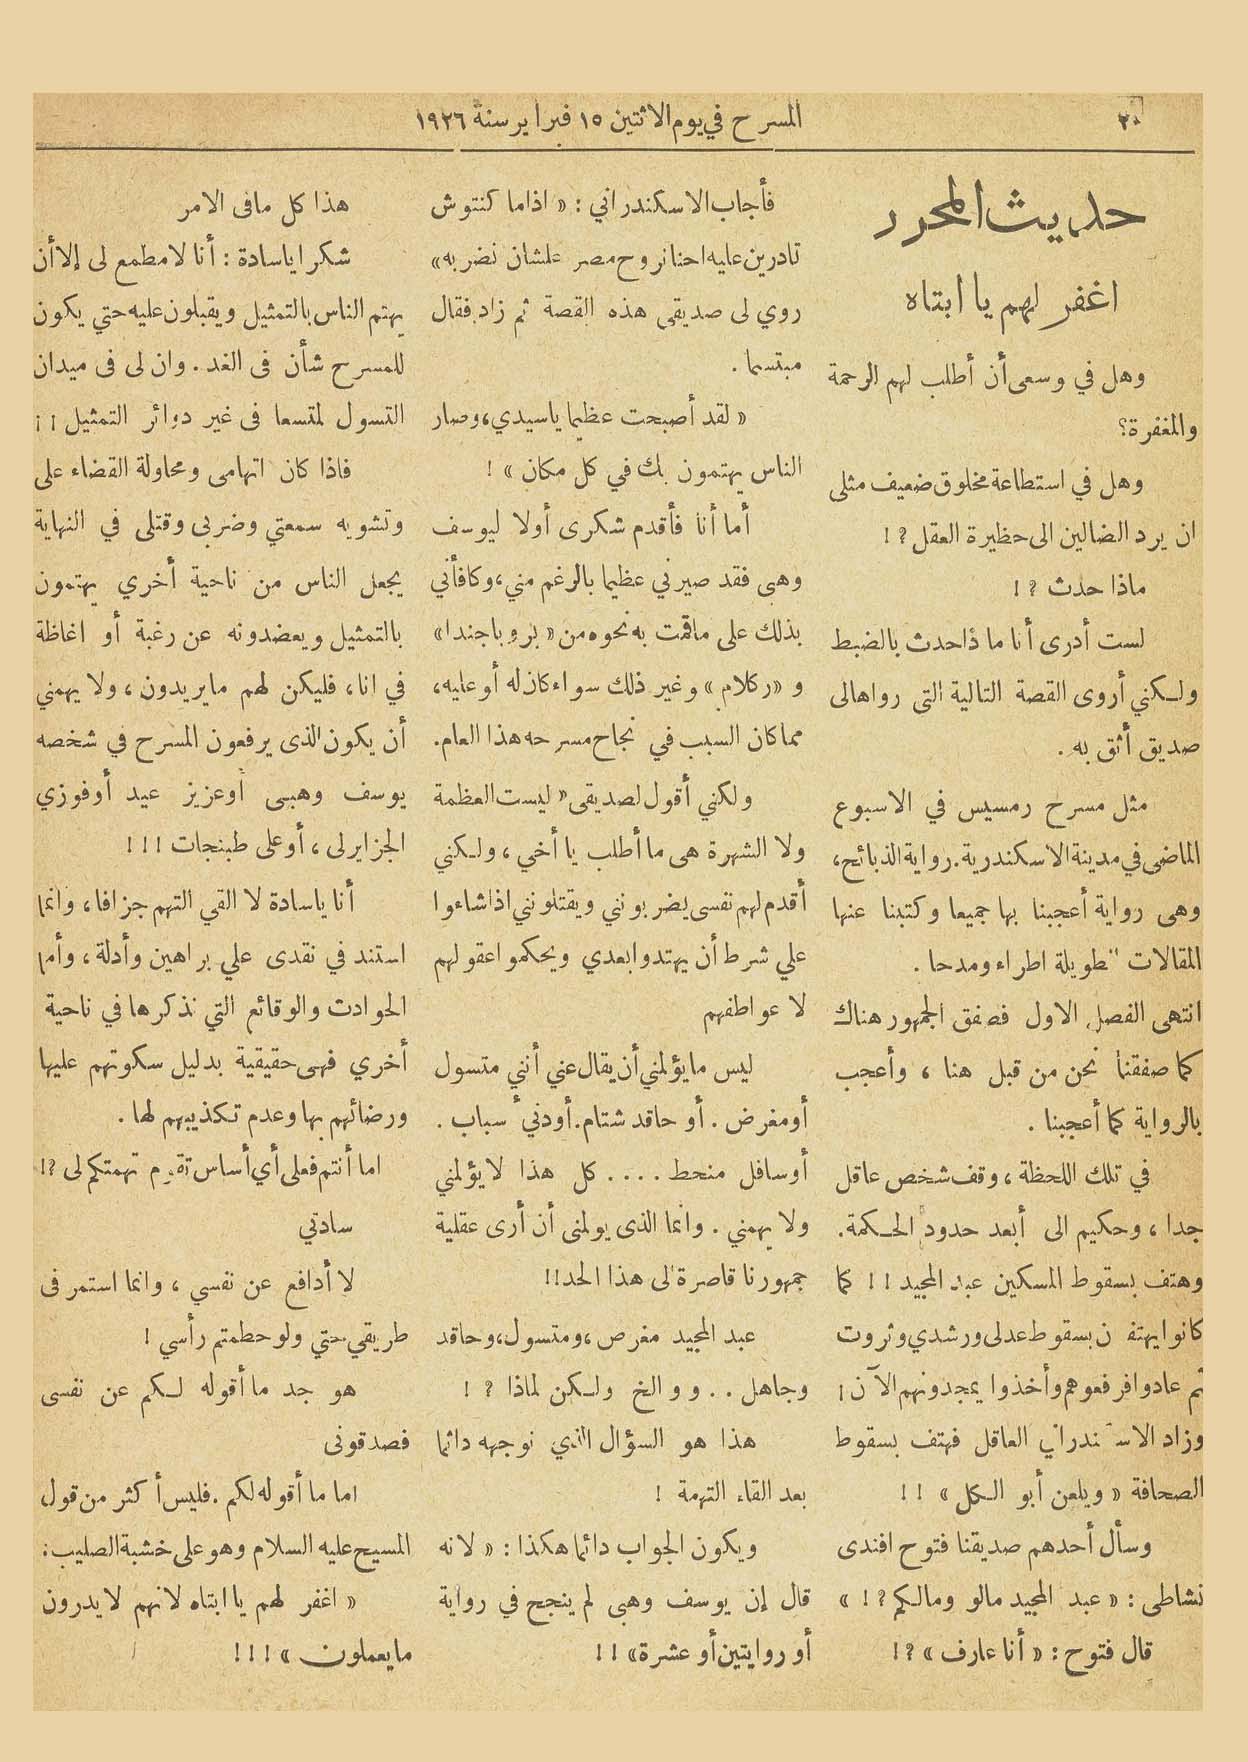 ٢٠
المسرح في يوم الاثنين ١٥ فبراير سنة ١٩٢٦
حديث المحرر
اغفر لهم يا ابتاه
وهل في وسعى أن أطلب لهم الرحمة
والمغفرة؟
وهل في استطاعة مخلوق ضعيف مثلى
ان يرد الضالين الى حظيرة العقل ؟ !
ماذا حدث ؟ !
لست أدرى أنا ما ذا حدث بالضبط
ولكني أروى القصة التالية التى رواها لى
صديق أثق به .
مثل مسرح رمسيس في الاسبوع
الماضى في مدينة الاسكندرية . رواية الذبائح،
وهى رواية أعجبنا بها جميعا وكتبنا عنها
المقالات الطويلة اطراء ومدحا .
انتهى الفصل الاول فصفق الجمهور هناك
كما صفقنا نحن من قبل هنا ، وأعجب
بالرواية كما أعجبنا .
في تلك اللحظة ، وقف شخص عاقل
جدا ، وحكيم الى أبعد حدود الحكمة .
وهتف بسقوط المسكين عبد المجيد ! ! كما
كانوا يهتفون بسقوط عدلى ورشدي وثروت
ثم عادوا فرفعوهم وأخذوا يمجدونهم الآن !
وزاد الاسكندراني العاقل فهتف بسقوط
الصحافة « ويلعن أبو الكل » ! !
وسأل أحدهم صديقنا فتوح افندى
نشاطى : « عبد المجيد مالو ومالكم ؟ ! »
قال فتوح : « أنا عارف » ؟ !
فأجاب الاسكندراني : « اذا ما كنتوش
قادرين عليه احنا نروح مصر علشان نضربه »
روي لى صديقى هذه القصة ثم زاد فقال
مبتسما .
« لقد أصبحت عظيما ياسيدي، وصار
الناس يهتمون بك في كل مكان » !
أما أنا فأقدم شكرى أولا ليوسف
وهبى فقد صيرني عظيما بالرغم مني، وكافأني
بذلك على ماقمت به نحوه من « بروباجندا »
و « ركلام » وغير ذلك سواء كان له أو عليه،
مما كان السبب في نجاح مسرحه هذا العام .
ولكني أقول لصديقى « ليست العظمة
ولا الشهرة هى ما أطلب يا أخي ، ولكني
أقدم لهم نفسى يضربونني ويقتلونني اذا شاءوا
علي شرط أن يهتدوا بعدي ويحكموا عقولهم
لا عواطفهم
ليس ما يؤلمني أن يقال عني أنني متسول
أو مغرض . أو حاقد شتام . أو دنئ سباب .
أو سافل منحط . . . . كل هذا لا يؤلمني
ولا يهمني . وانما الذى يولمنى أن أرى عقلية
جمهورنا قاصرة الى هذا الحد ! !
عبد المجيد مغرض ، ومتسول ، وحاقد
وجاهل . . و و الخ ولكن لماذا ؟ !
هذا هو السؤال الذي نوجهه دائما
بعد القاء التهمة !
ويكون الجواب دائما هكذا : « لانه
قال إن يوسف وهبى لم ينجح في رواية
أو روايتين أو عشرة » ! !
هذا كل مافى الامر
شكرا ياسادة : أنا لا مطمع لى إلا أن
يهتم الناس بالتمثيل ويقبلون عليه حتي يكون
للمسرح شأن فى الغد . وان لى فى ميدان
التسول لمتسعا فى غير دوائر التمثيل ! !
فاذا كان اتهامى ومحاولة القضاء على
وتشويه سمعتي وضربى وقتلى في النهاية
يجعل الناس من ناحية أخري يهتمون
بالتمثيل ويعضدونه عن رغبة أو اغاظة
في انا ، فليكن لهم مايريدون ، ولا يهمني
أن يكون الذى يرفعون المسرح في شخصه
يوسف وهبى أوعزيز عيد أوفوزي
الجزايرلى ، أو على طبنجات ! ! !
أنا ياسادة لا القي التهم جزافا ، وانما
استند في نقدى علي براهين وأدلة ، وأما
الحوادث والوقائع التي نذكرها في ناحية
أخري فهى حقيقية بدليل سكوتهم عليها
ورضائهم بها وعدم تكذيبهم لها .
اما أنتم فعلى أي أساس تقوم تهمتكم لى ؟ !
سادتي
لا أدافع عن نفسي ، وانما استمر فى
طريقي حتي ولو حطمتم رأسي !
هو جد ما أقوله لكم عن نفسى
فصدقونى
اما ما أقوله لكم . فليس أكثر من قول
المسيح عليه السلام وهو على خشبة الصليب :
« اغفر لهم يا ابتاه لانهم لا يدرون
مايعملون » ! ! !